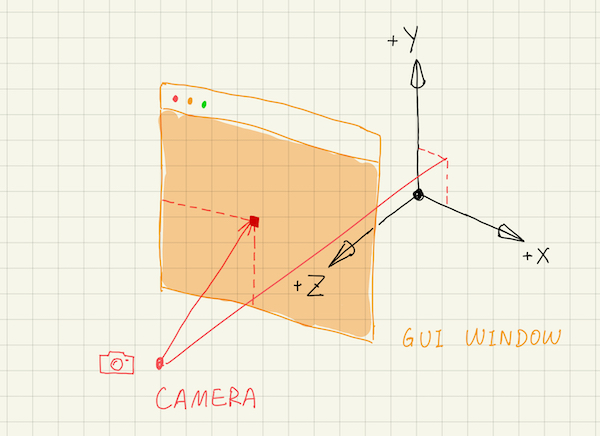 +Y
+X
+Z
GUI WINDOW
CAMERA